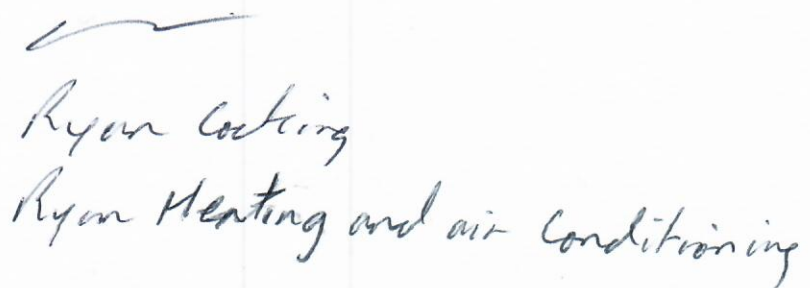 Ryan
Ryan Heating and air Conditioning